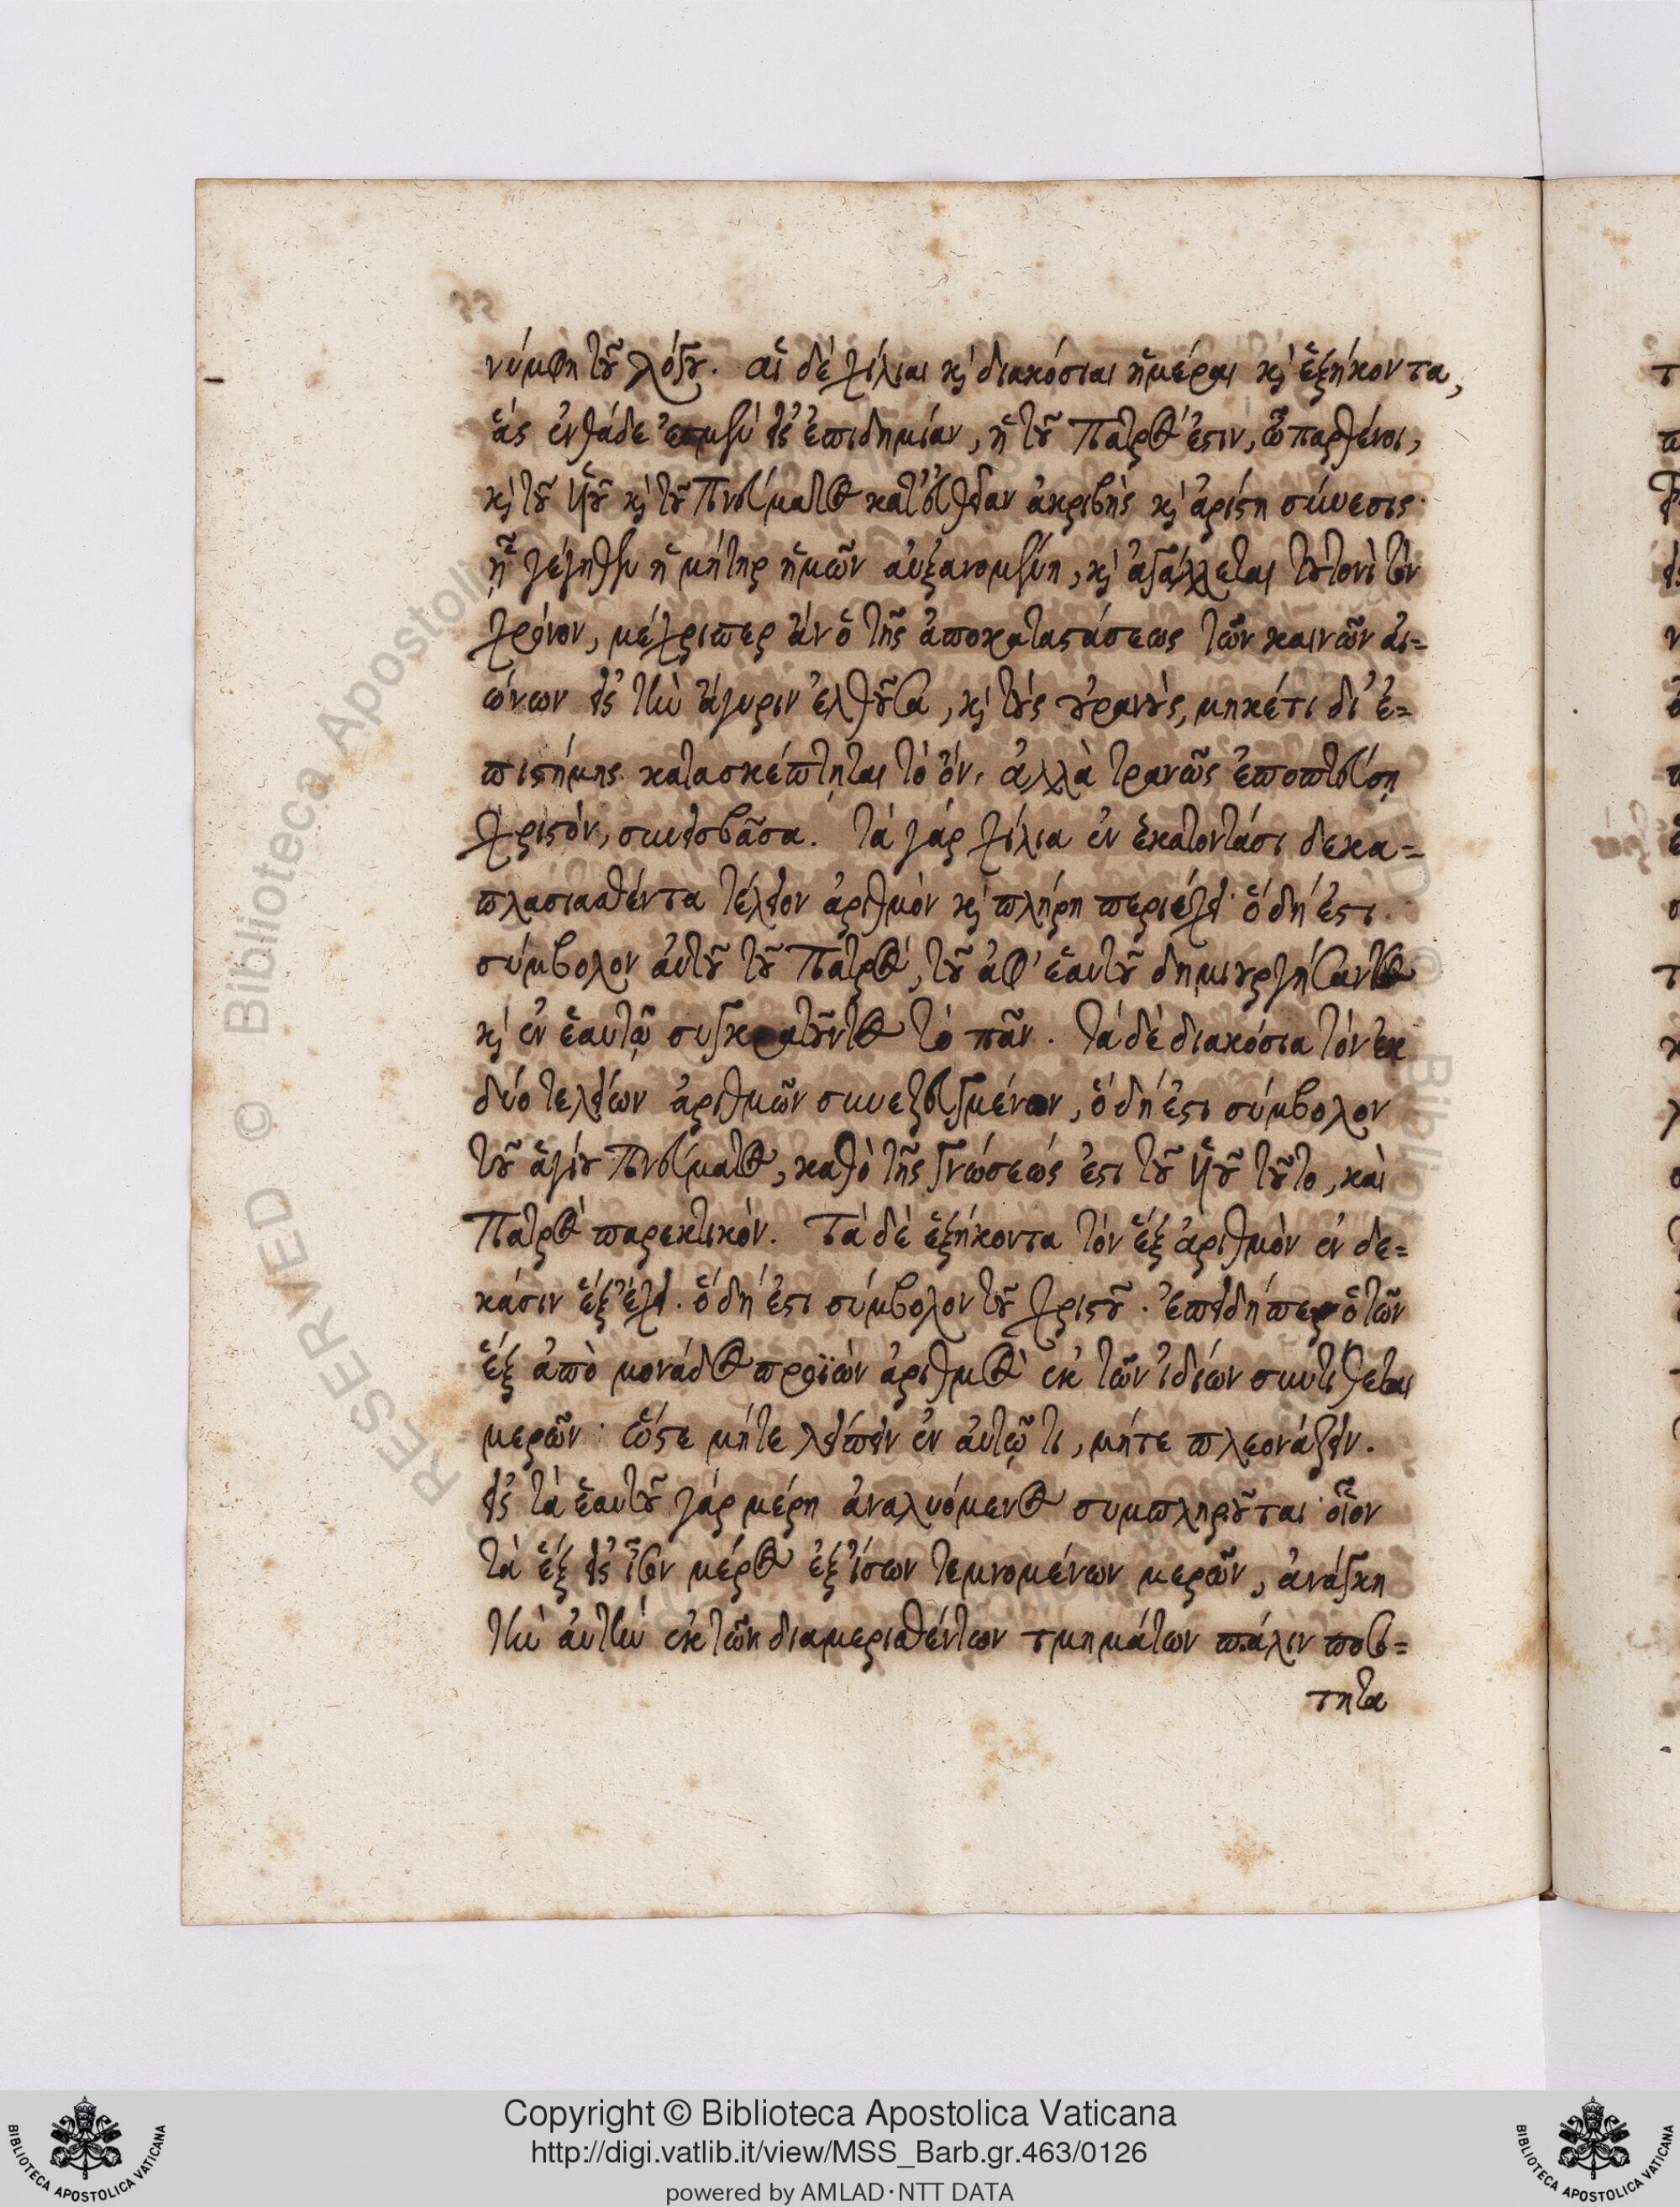 νύμφη τοῦ λόγου. αἱ δὲ χίλιαι κỳ διακόσιαι ἡμέραι κỳ ἑξήκοντα,
ἃς ἐνθάδε ἐσμὲν εἰς ἐπιδημίαν, ἡ τοῦ Πατρός ἐστιν, ὦ παρθένοι,
κỳ τοῦ Υἱοῦ κỳ τοῦ Πνεύματος κατ' εὐθεῖαν ἀκριβὴς κỳ ἀρίστη σύνεσις·
ᾗ γέγηθεν ἡ μήτηρ ἡμῶν αὐξανομένη, κỳ ἀγάλλεται τουτονὶ τὸν
χρόνον, μέχριπερ ἂν ὁ τῆς ἀποκαταστάσεως τῶν καινῶν αἰ=
ώνων εἰς τὴν ἄγυριν ἐλθοῦσα, κỳ τοὺς οὐρανούς, μηκέτι δι' ἐ=
πιστήμης κατασκέπτηται τὸ ὄν, ἀλλὰ τρανῶς ἐποπτεύσῃ
Χριστόν, συνεισβᾶσα. τὰ γὰρ χίλια ἐν ἑκατοντάσι δεκα=
πλασιασθέντα τέλειον ἀριθμὸν κỳ πλήρη περιέχει· ὃ δή ἐστι
σύμβολον αὐτοῦ τοῦ Πατρός, τοῦ ἀφ' ἑαυτοῦ δημιουργήσαντος
κỳ ἐν ἑαυτῷ συγκρατοῦντος τὸ πᾶν. τὰ δὲ διακόσια τὸν ἐκ
δύο τελείων ἀριθμῶν συνεζευγμένον, ὃ δή ἐστι σύμβολον
τοῦ ἁγίου Πνεύματος, καθὸ τῆς γνώσεώς ἐστι τοῦ Υἱοῦ τοῦτο, καὶ
Πατρὸς παρεκτικόν. Τὰ δὲ ἑξήκοντα τὸν ἓξ ἀριθμὸν ἐν δε=
κάσιν ἓξ ἔχει. ὃ δή ἐστι σύμβολον τοῦ Χριστοῦ. ἐπειδήπερ ὁ τῶν
ἓξ ἀπὸ μονάδος προϊὼν ἀριθμὸς ἐκ τῶν ἰδίων συντίθεται
μερῶν· ὥστε μήτε λείπειν ἐν αὐτῷ τι, μήτε πλεονάζειν.
εἰς τὰ ἑαυτοῦ γὰρ μέρη ἀναλυόμενος συμπληροῦται· οἷον
τὰ ἓξ εἰς ἴσον μέρος ἐξ ἴσων τεμνομένων μερῶν, ἀνάγκη
τὴν αὐτὴν ἐκ τῶν διαμερισθέντων τμημάτων πάλιν ποσ=
τητα
Copyright © Biblioteca Apostolica Vaticana
http://digi.vatlib.it/view/MSS_Barb.gr.463/0126
powered by AMLAD·NTT DATA